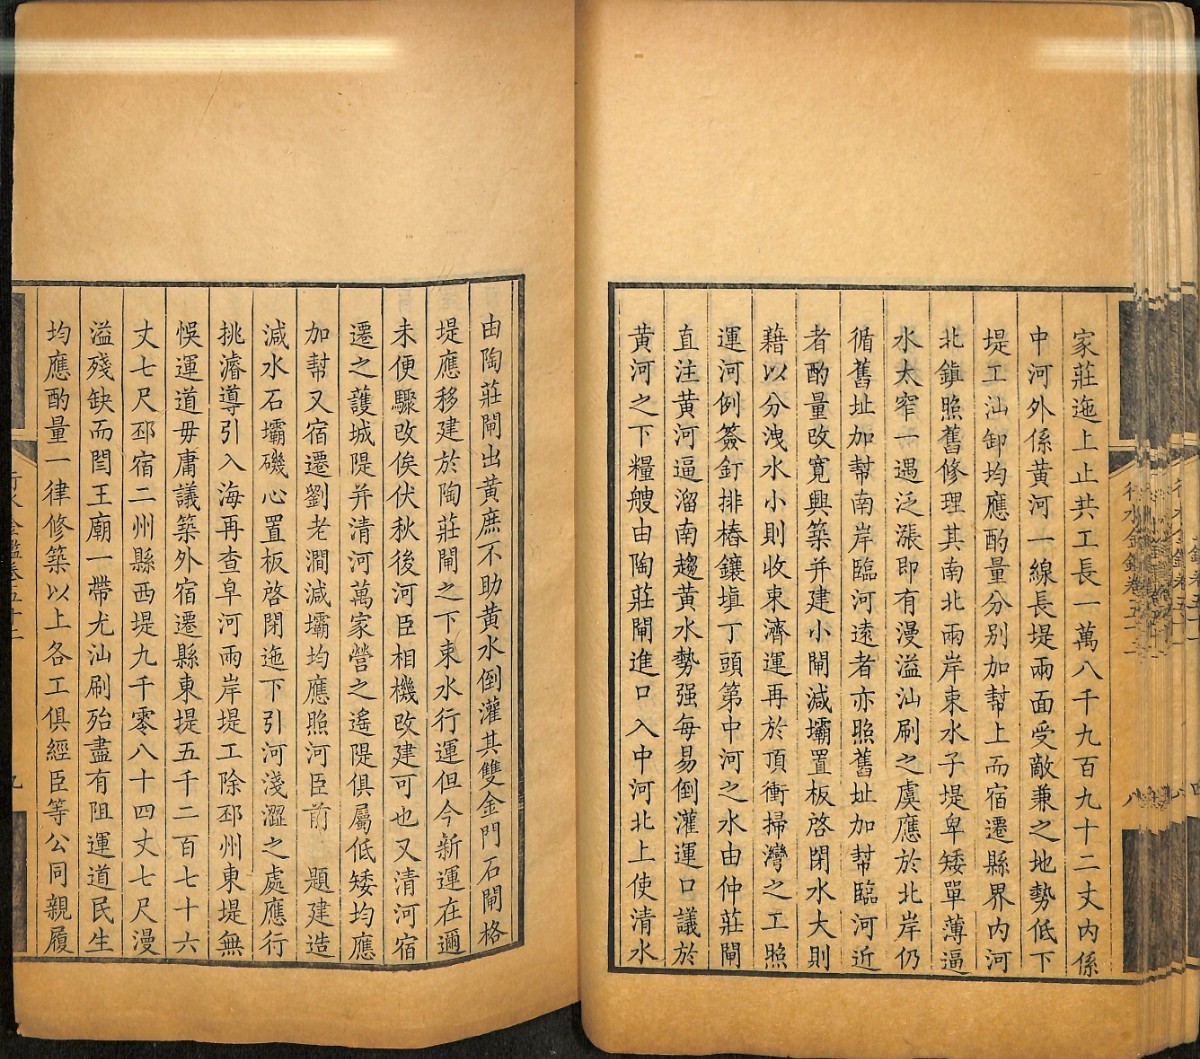 家莊迤上止共工長一萬八千九百九十二丈內係
中河外係黃河一線長堤兩面受敵兼之地勢低下
堤工汕卸均應酌量分別加幫上而宿遷縣界內河
北鎮照舊修理其南北兩岸束水子堤卑矮單薄逼
水太窄一遇泛漲即有漫溢汕刷之虞應於北岸仍
循舊址加幫南岸臨河遠者亦照舊址加幫臨河近
者酌量改寬興築并建小閘減壩置板啓閉水大則
藉以分洩水小則收束濟運再於頂衝掃灣之工照
運河例簽釘排樁鑲塡丁頭第中河之水由仲莊閘
直注黃河逼溜南趨黃水勢强每易倒灌運口議於
黃河之下糧艘由陶莊閘進口入中河北上使清水
由陶莊閘出黃庶不助黃水倒灌其雙金門石閘格
堤應移建於陶莊閘之下束水行運但今新運在邇
未便驟改俟伏秋後河臣相機改建可也又清河宿
遷之護城隄并清河萬家營之遙隄俱屬低矮均應
加幫又宿遷劉老澗減壩均應照河臣前 題建造
減水石壩磯心置板啓閉迤下引河淺澀之處應行
挑濬導引入海再查皁河兩岸堤工除邳州東堤無
悞運道毋庸議築外宿遷縣東堤五千二百七十六
丈七尺邳宿二州縣西堤九千零八十四丈七尺漫
溢殘缺而閆王廟一帶尤汕刷殆盡有阻運道民生
均應酌量一律修築以上各工俱經臣等公同親履
行水金鑑卷五十二
九